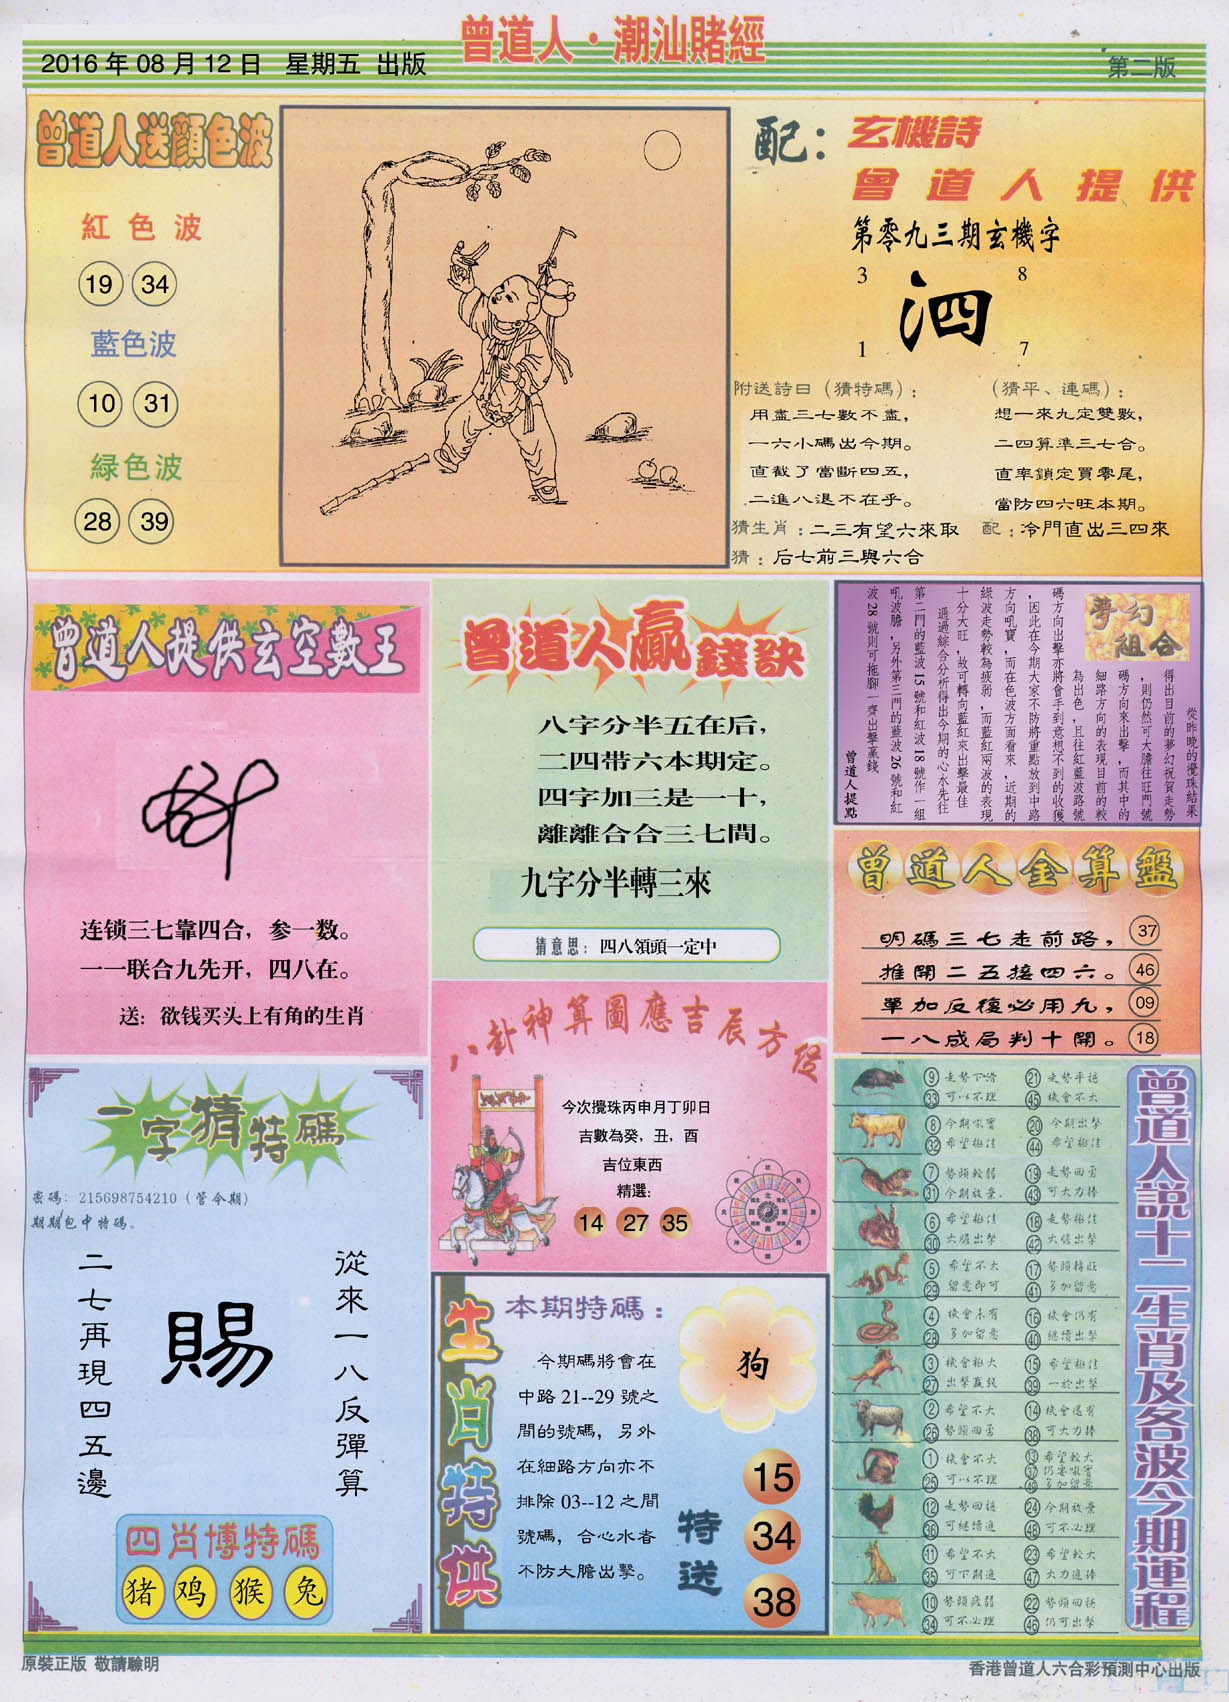 曾道人·潮汕賭經
2016年08月12日 星期五 出版
第二版
曾道人送顏色波
紅色波
19 34
藍色波
10 31
緑色波
28 39
配：玄機詩
曾道人提供
第零九三期玄機字
3 8
泗
1 7
附送詩曰（猜特碼）：
用盡三七數不盡，
一六小碼出今期。
直截了當斷四五，
二進八退不在乎。
（猜平、連碼）：
想一來九定雙數，
二四算準三七合。
直率鎖定買零尾，
當防四六旺本期。
猜生肖：二三有望六來取
配：冷門直出三四來
猜：后七前三與六合
曾道人提供玄空數王
连锁三七靠四合，参一数。
一一联合九先开，四八在。
送：欲钱买头上有角的生肖
曾道人贏錢訣
八字分半五在后，
二四带六本期定。
四字加三是一十，
離離合合三七間。
九字分半轉三來
猜意思：四八領頭一定中
夢幻組合
從昨晚的攪珠結果
得出目前的夢幻祝賀走勢
，則仍然可大膽往旺門號
碼方向來出擊，而其中的
細路方向的表現目前的較
為出色，且往紅藍波路號
碼方向出擊亦將會手到意想不到的收獲
，因此在今期大家不防將重點放到中路
方向吼寶，而在色波方面看來，近期的
綠波走勢較為疲弱，而藍紅兩波的表現
十分大旺，故可轉向藍紅來出擊最佳
通過綜合分析得出今期的心水先往
第二門的藍波15號和紅波18號作一組
吼波膽，另外第三門的藍波26號和紅
波28號則可拖腳一齊出擊贏錢
曾道人提點
曾道人金算盤
明碼三七走前路， 37
推開二五接四六。 46
單加反復必用九， 09
一八成局判十開。 18
八卦神算圖應吉辰方位
今次攪珠丙申月丁卯日
吉數為癸，丑，酉
吉位東西
精選：
14 27 35
一字猜特碼
密碼：215698754210（管今期）
期期包中特碼。
從來一八反彈算
賜
二七再現四五邊
四肖博特碼
猪 鸡 猴 兔
生肖特供
本期特碼：
今期碼將會在
中路21--29號之
間的號碼，另外
在細路方向亦不
排除03--12之間
號碼，合心水者
不防大膽出擊。
狗
特送
15
34
38
曾道人説十二生肖及各波今期運程
9 走勢下滑 21 走勢平穩
33 可以不理 45 機會不大
8 今期吼寶 20 今期出擊
32 希望極佳 44 希望極佳
7 勢頭較弱 19 走勢回勇
31 今期放棄 43 可大力捧
6 希望極佳 18 走勢極佳
30 大膽出擊 42 大膽出擊
5 希望不大 17 勢頭轉旺
29 留意即可 41 多加留意
4 機會未有 16 機會仍有
28 多加留意 40 繼續出擊
3 機會極大 15 希望極佳
27 出擊贏錢 39 一於出擊
2 希望不大 14 機會還有
26 勢頭回勇 38 可大力捧
1 機會不大 13 希望較大
25 可以不理 37 仍要吼實
49 多加留意
12 走勢回穩 24 今期放棄
36 可繼續追 48 可不必理
11 希望不大 23 希望較大
35 可下期追 47 大力追捧
10 勢頭疲弱 22 勢頭回穩
34 可不必理 46 仍可出擊
原裝正版 敬請驗明
香港曾道人六合彩預測中心出版